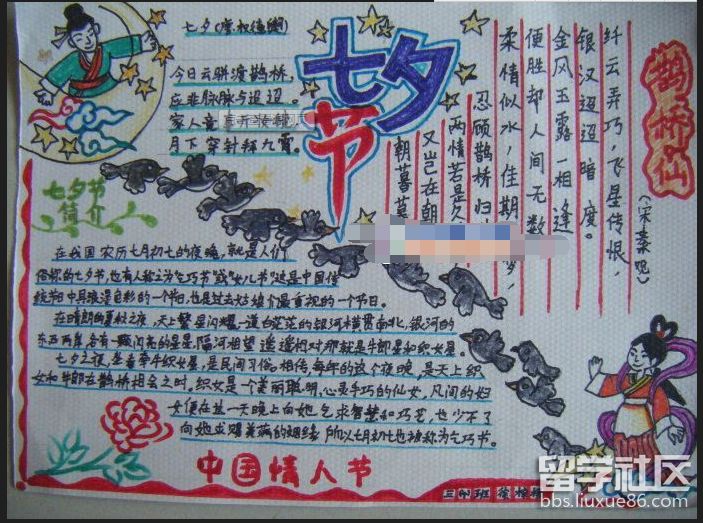 七夕(唐·权德舆)
今日云骈渡鹊桥，
应非脉脉与迢迢。
家人竟喜开妆镜，
月下穿针拜九霄。
七夕
节
鹊桥仙
(宋秦观)
纤云弄巧，飞星传恨，
银汉迢迢暗度。
金风玉露一相逢
便胜却人间无数
柔情似水，佳期
梦，
忍顾鹊桥归
两情若是久
又岂在朝
朝暮暮
七夕节
简介
在我国农历七月初七的夜晚，就是人们
俗称的七夕节，也有人称之为"乞巧节"或"女儿节"这是中国传
统节日中具浪漫色彩的一个节日，也是过去姑娘们最重视的一个节日。
在晴朗的夏秋之夜，天上繁星闪耀一道白茫茫的银河横贯南北，银河的
东西两岸，各有一颗闪亮的星星，隔河相望 遥遥相对那就是牛郎星和织女星。
七夕之夜，坐看牵牛织女星，是民间习俗。相传，每年的这个夜晚，是天上织
女和牛郎在鹊桥相会之时。织女是一个美丽聪明，心灵手巧的仙女，凡间的妇
女便在这一天晚上向她乞求智慧和巧艺，也少不了
向她求赐美满的姻缘 所以七月初七也被称为乞巧节。
中国情人节
班
留学社区
bbs.liuxue86.com